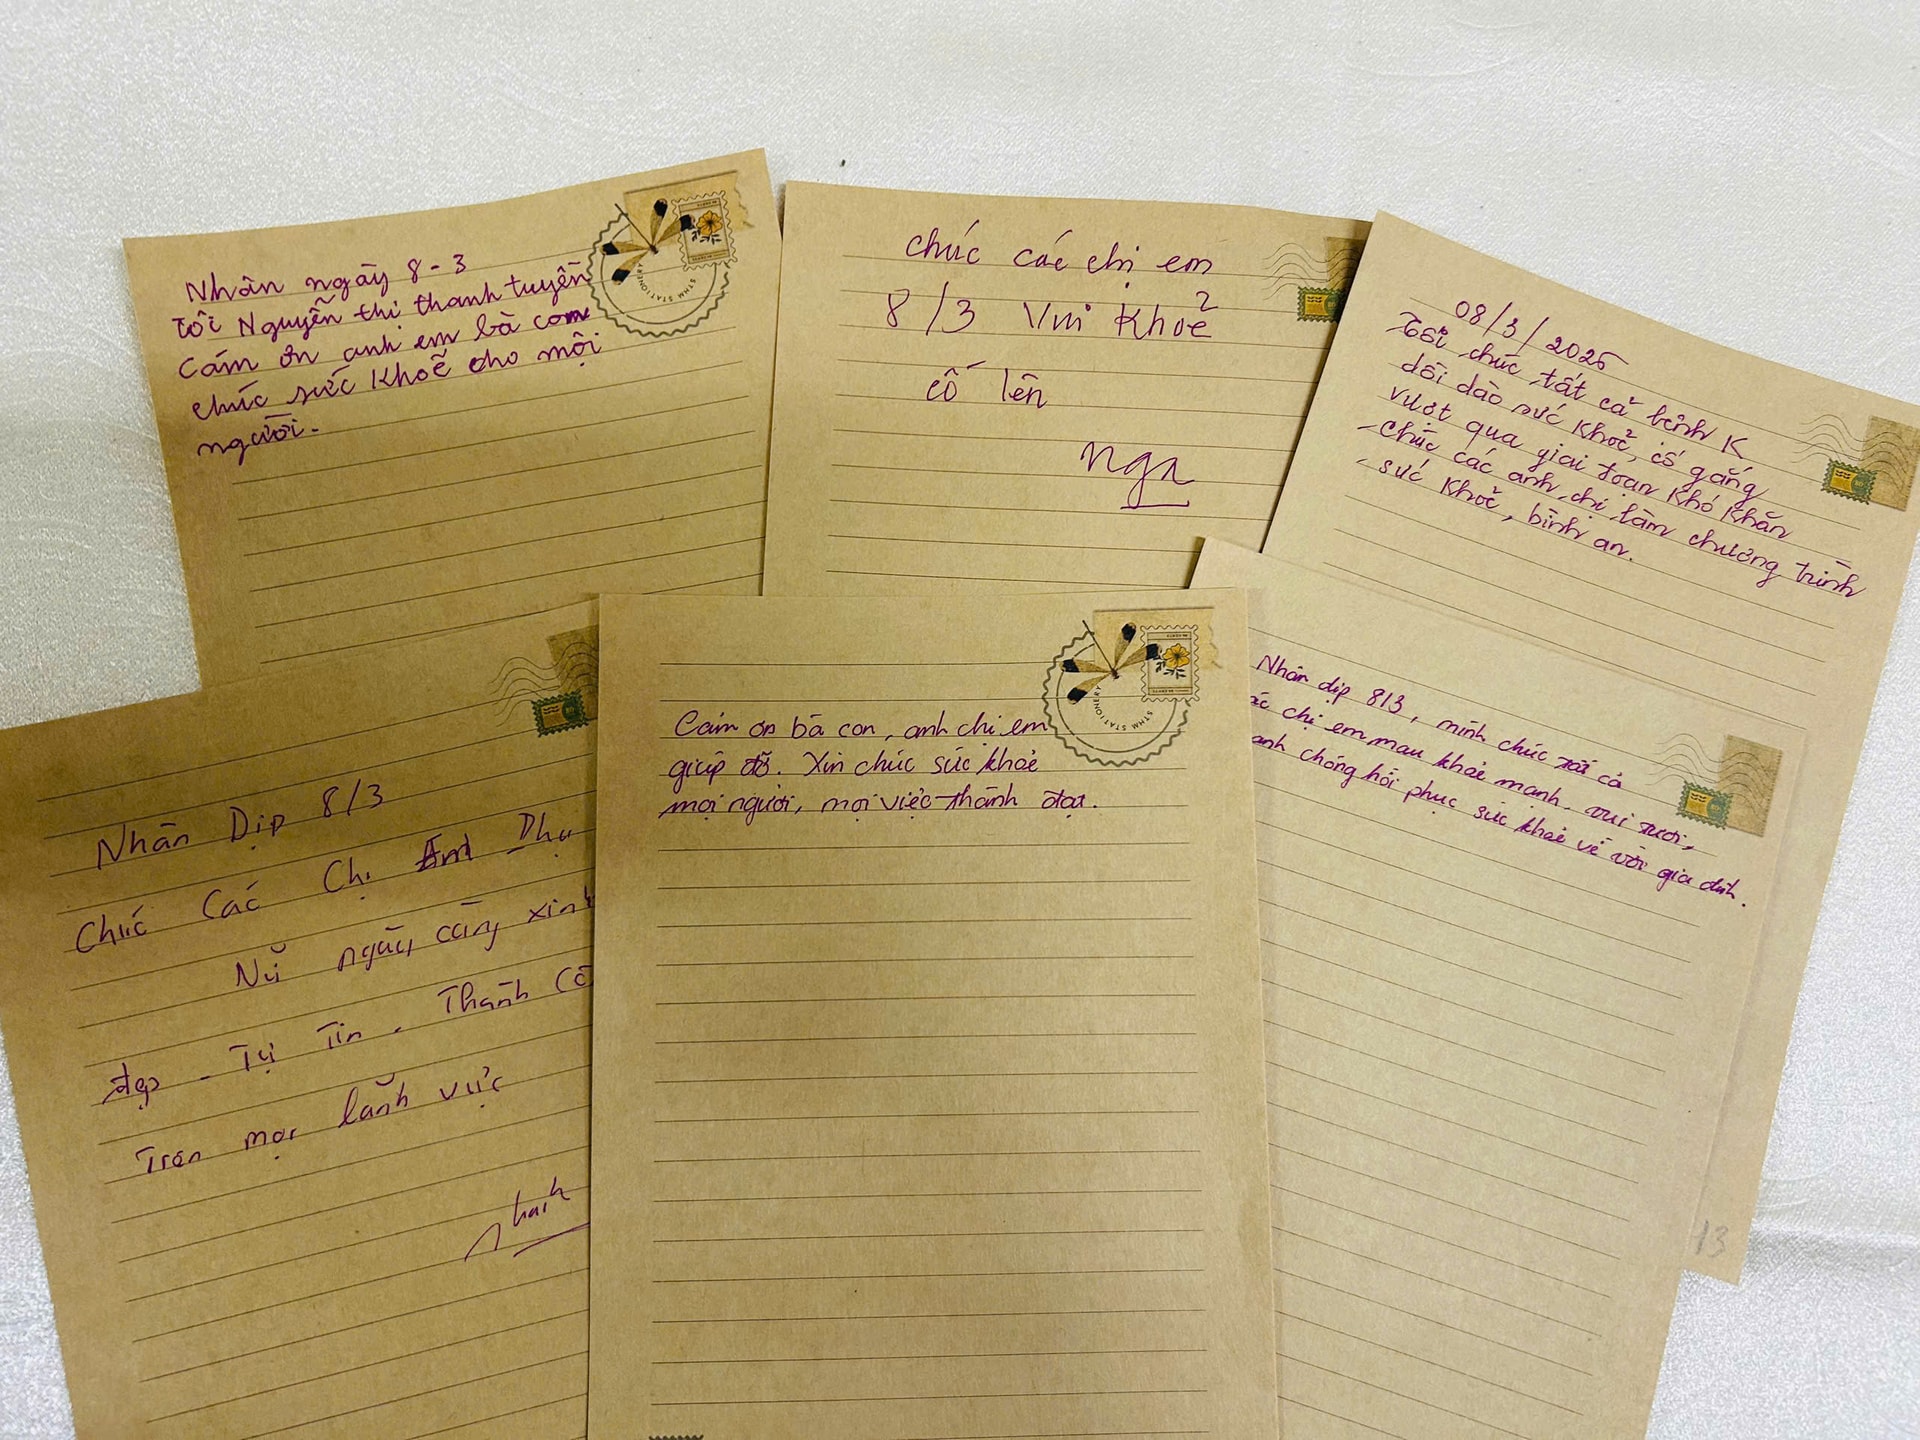 Nhân ngày 8-3
Tôi Nguyễn thị thanh tuyền
Cám ơn anh em bà con
chúc sức Khoẽ cho mọi
người.
STHM STATIONERY
chúc các chị em
8/3 Vui Khoẻ
cố lên
nga
08/3/2025
Tôi chúc tất cả bệnh K
dồi dào sức Khoẻ, cố gắng
vượt qua giai đoạn Khó Khăn
- chúc các anh chị làm chương trình
sức Khoẻ, bình an.
Nhân Dịp 8/3
Chúc Các Chị Em Phụ
Nữ ngày càng xinh
đẹp - Tự Tin - Thành Cô
Tren mọi lãnh vực
Cám ơn bà con, anh chị em
giúp đỡ. Xin chúc sức khỏe
mọi người, mọi việc thành đạt.
STHM STATIONERY
Nhân dịp 8/3, mình chúc tất cả
ác chị em mau khỏe mạnh, vui tươi,
anh chóng hồi phục sức khỏe về với gia đình.
13